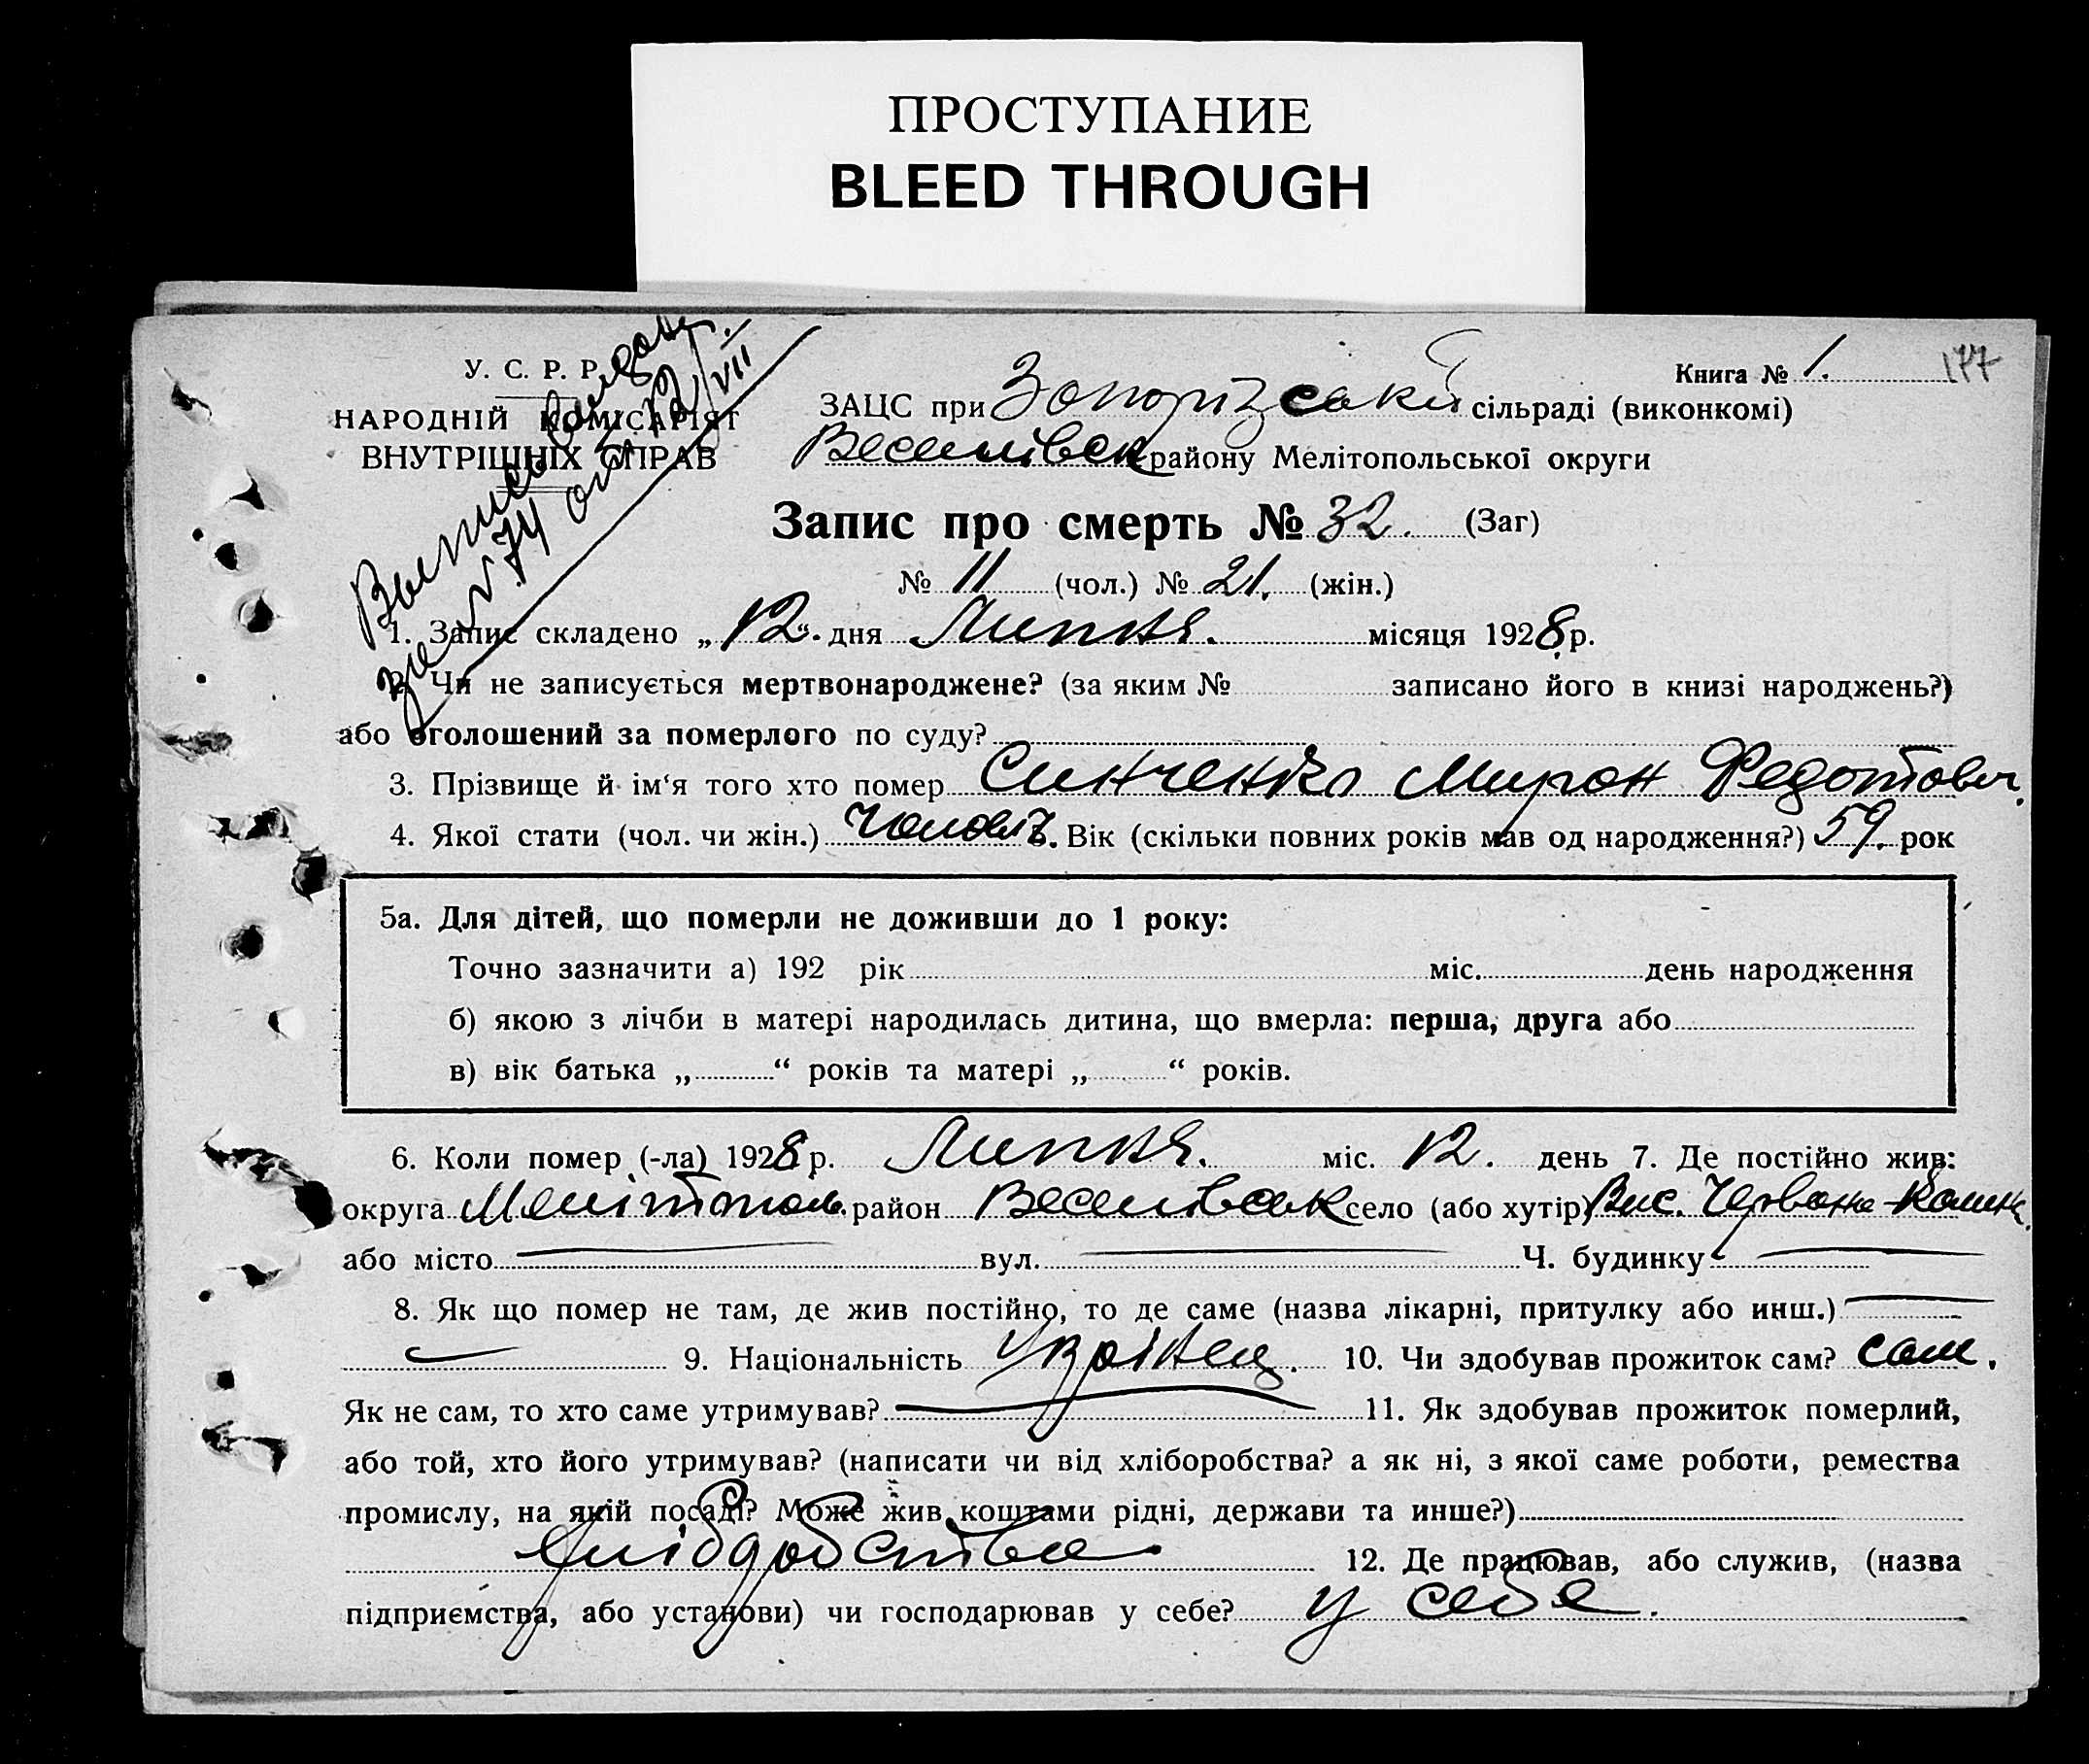 ПРОСТУПАНИЕ
BLEED THROUGH
У. С. Р. Р.
НАРОДНІЙ КОМІСАРІЯТ
ВНУТРІШНІХ СПРАВ
Книга № 1. 177
ЗАЦС при Запорізській сільраді (виконкомі)
Веселівськ району Мелітопольської округи
Запис про смерть № 32. (Заг)
№ 11 (чол.) № 21. (жін.)
Выпись выдана
за № 74 от 12/VII
1. Запис складено „12“. дня Липня. місяця 1928 р.
2. Чи не записується мертвонароджене? (за яким № записано його в книзі народжень?)
або оголошений за померлого по суду?
3. Прізвище й ім‘я того хто помер Синченко Мирон Федотович.
4. Якої стати (чол. чи жін.) Чоловіч. Вік (скільки повних років мав од народження?) 59. рок
5а. Для дітей, що померли не доживши до 1 року:
Точно зазначити а) 192 рік міс. день народження
б) якою з лічби в матері народилась дитина, що вмерла: перша, друга або
в) вік батька „ “ років та матері „ “ років.
6. Коли помер (-ла) 1928 р. Липня. міс. 12. день 7. Де постійно жив:
округа Мелітополь. район Веселівськ село (або хутір) Вис. Червона-Калина.
або місто вул. Ч. будинку
8. Як що помер не там, де жив постійно, то де саме (назва лікарні, притулку або инш.)
9. Національність Україн­ец. 10. Чи здобував прожиток сам? сам.
Як не сам, то хто саме утримував? 11. Як здобував прожиток померлий,
або той, хто його утримував? (написати чи від хліборобства? а як ні, з якої саме роботи, ремества
промислу, на якій посаді? Може жив коштами рідні, держави та инше?)
хлібробства 12. Де працював, або служив, (назва
підприємства, або установи) чи господарював у себе? у себе.